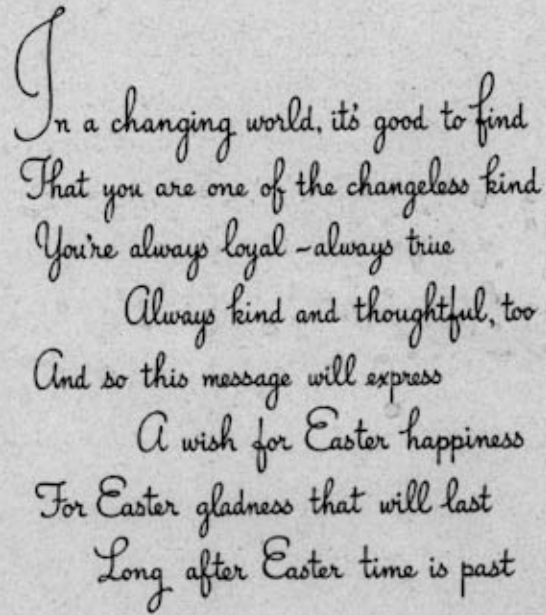 In a changing world, it's good to find
That you are one of the changeless kind
You're always loyal - always true
Always kind and thoughtful, too
And so this message will express
A wish for Easter happiness
For Easter gladness that will last
Long after Easter time is past